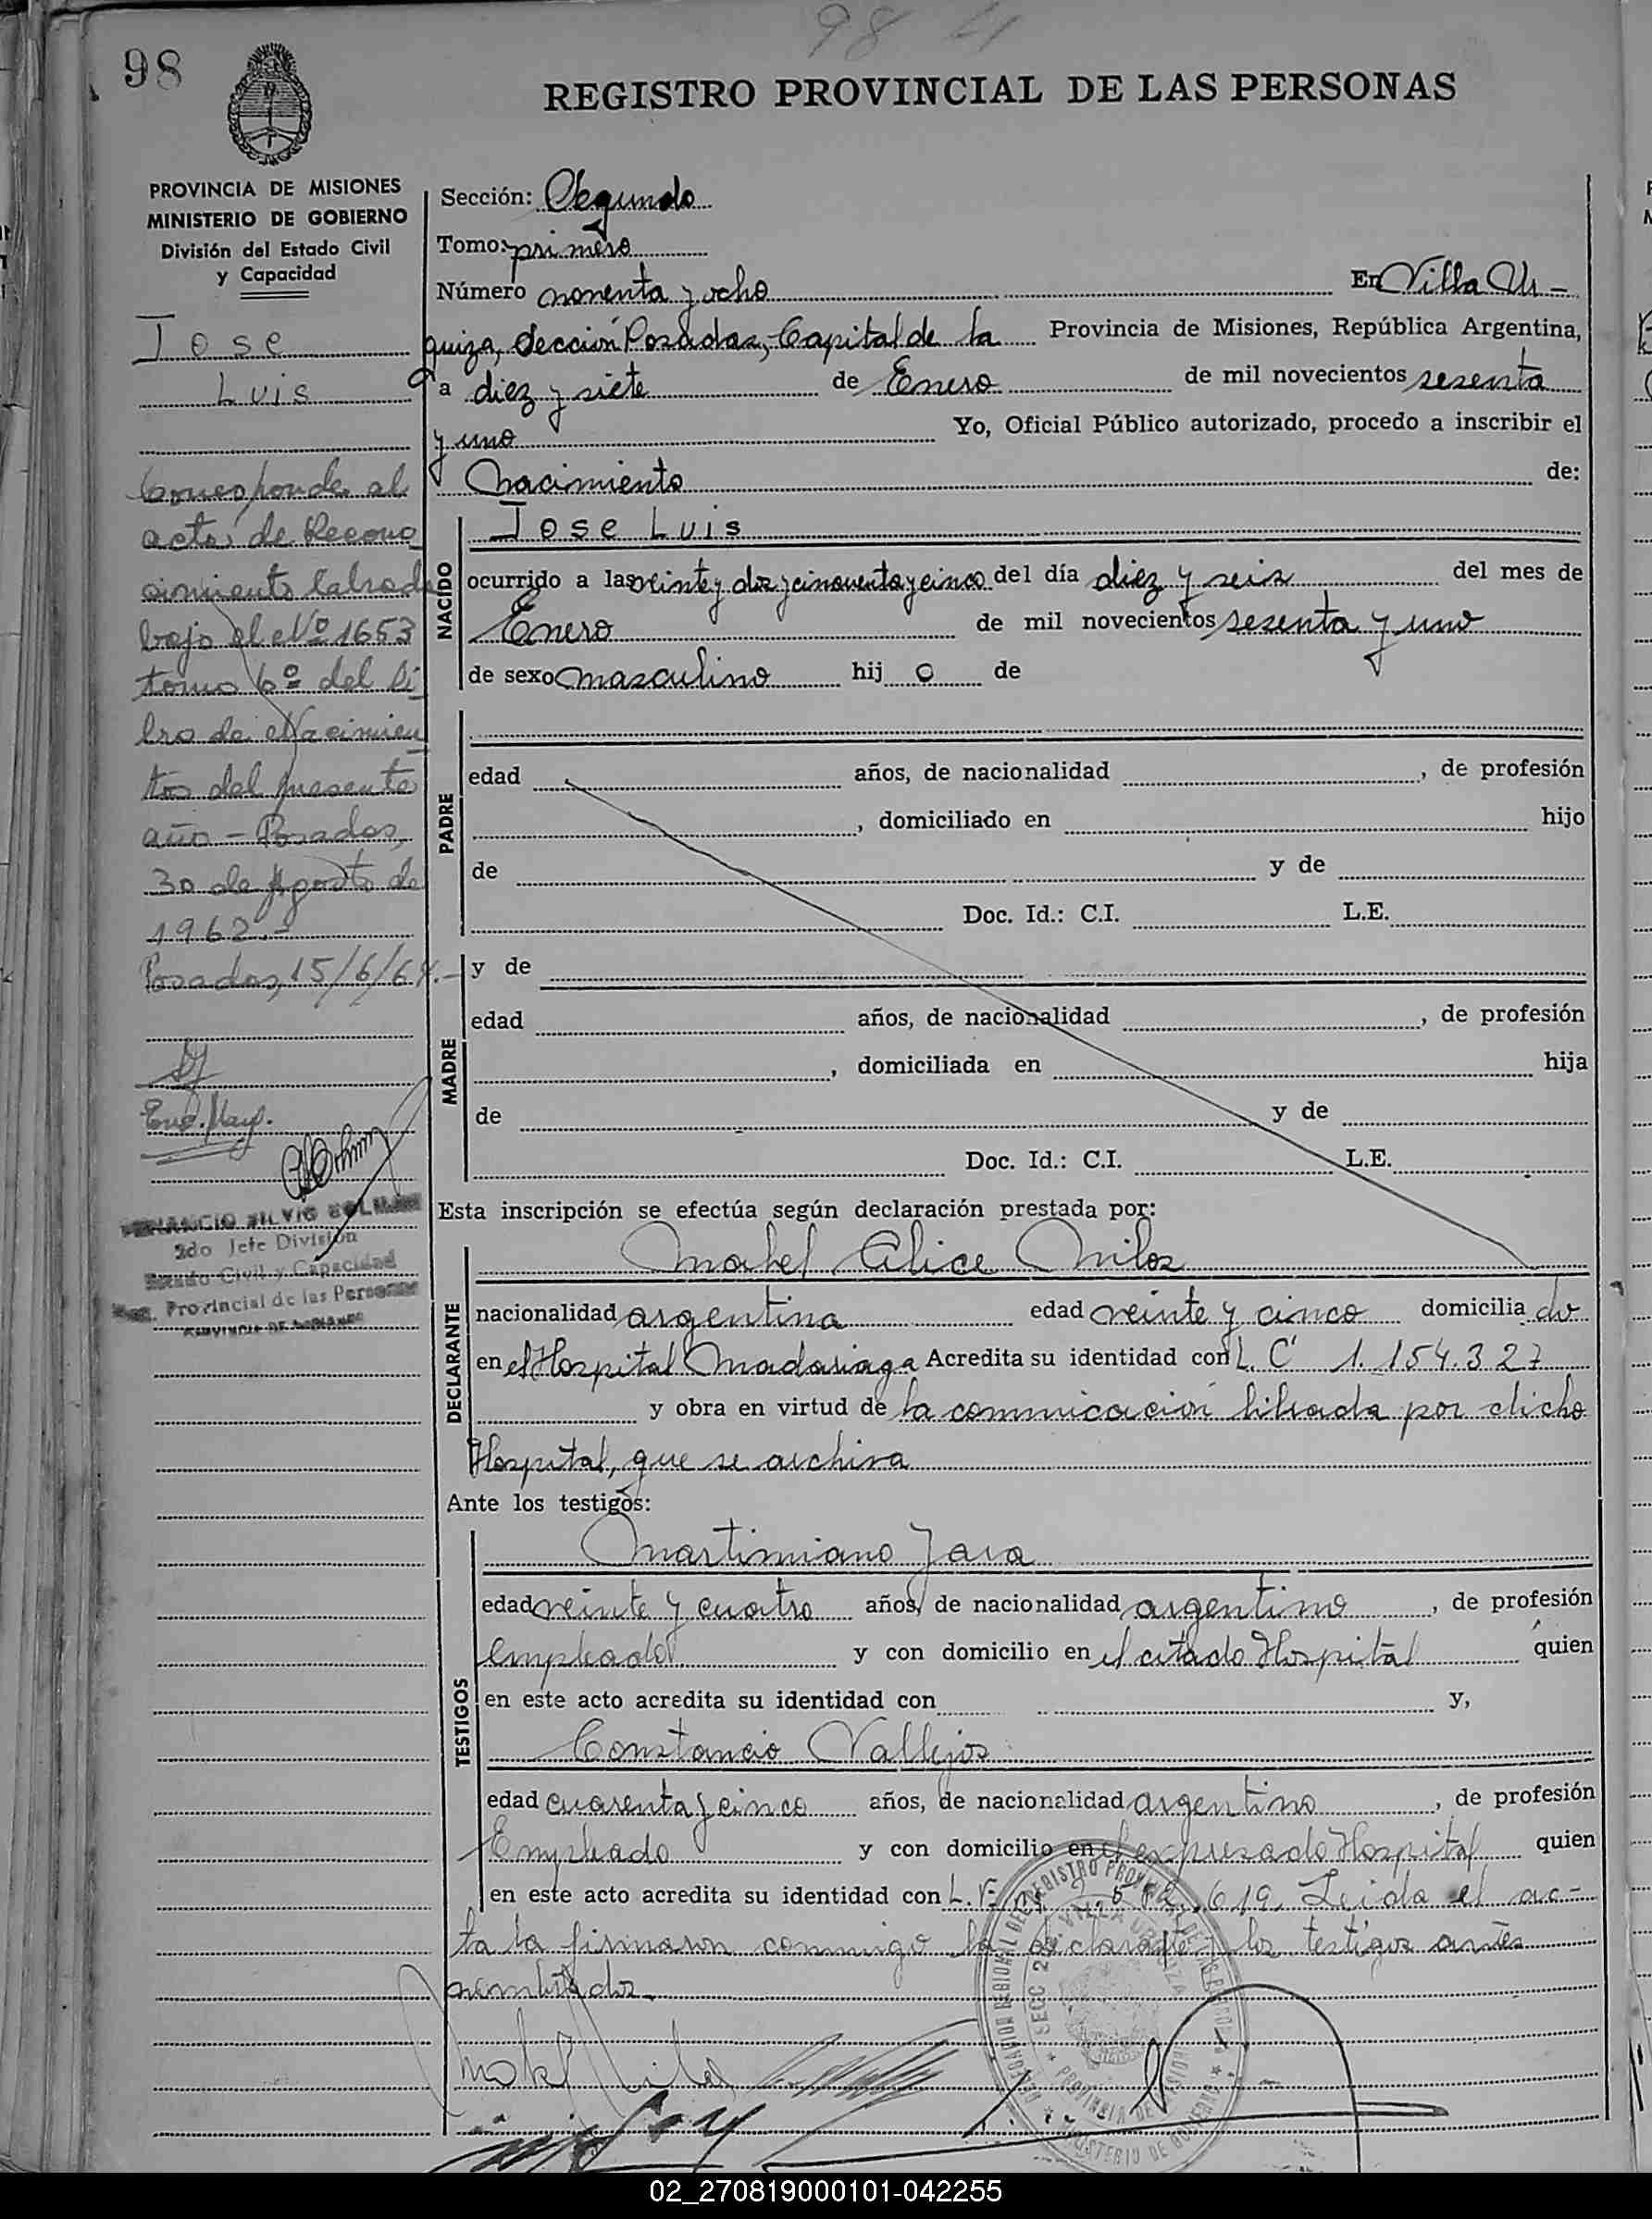 98 4
98
REGISTRO PROVINCIAL DE LAS PERSONAS
PROVINCIA DE MISIONES
MINISTERIO DE GOBIERNO
División del Estado Civil
y Capacidad
Jose
Luis
Corresponde al
acta de Recono
cimiento labrado
bajo el Nº 1653
tomo 6º del Li
bro de Nacimien
tos del presente
año - Posadas,
30 de Agosto de
1962.-
Posadas, 15/6/64.-
Enc. May.
VENANCIO SILVIO
2do Jefe División
Estado Civil y Capacidad
Reg. Provincial de las Personas
PROVINCIA DE MISIONES
Sección: Segunda
Tomo: primero
Número noventa y ocho En Villa Ur-
quiza, Sección Posadas, Capital de la Provincia de Misiones, República Argentina,
a diez y siete de Enero de mil novecientos sesenta
y uno Yo, Oficial Público autorizado, procedo a inscribir el
Nacimiento de:
NACIDO
Jose Luis
ocurrido a las veinte y dos y cincuenta y cinco del día diez y seis del mes de
Enero de mil novecientos sesenta y uno
de sexo masculino hijo de
PADRE
edad años, de nacionalidad , de profesión
, domiciliado en hijo
de y de
Doc. Id.: C.I. L.E.
MADRE
y de
edad años, de nacionalidad , de profesión
, domiciliada en hija
de y de
Doc. Id.: C.I. L.E.
Esta inscripción se efectúa según declaración prestada por:
DECLARANTE
Mabel Alice Milos
nacionalidad argentina edad veinte y cinco domicilia do
en el Hospital Madariaga Acredita su identidad con L. C 1.154.327
y obra en virtud de la comunicación librada por dicho
Hospital, que se archiva
Ante los testigos:
TESTIGOS
Martimiano Jara
edad veinte y cuatro años, de nacionalidad argentino, de profesión
empleado y con domicilio en el citado Hospital quien
en este acto acredita su identidad con y,
Constancio Vallejos
edad cuarenta y cinco años, de nacionalidad argentino, de profesión
Empleado y con domicilio en el expresado Hospital quien
en este acto acredita su identidad con L. E. 619, Leida el ac-
ta la firmaron conmigo la declarante y los testigos antes
nombrados.
Mabel Milos
DELEGACION REGIONAL DEL REGISTRO PROVINCIAL DE LAS PERSONAS
SECC 2da. VILLA URQUIZA
PROVINCIA DE MISIONES
MINISTERIO DE GOBIERNO
02_270819000101-042255